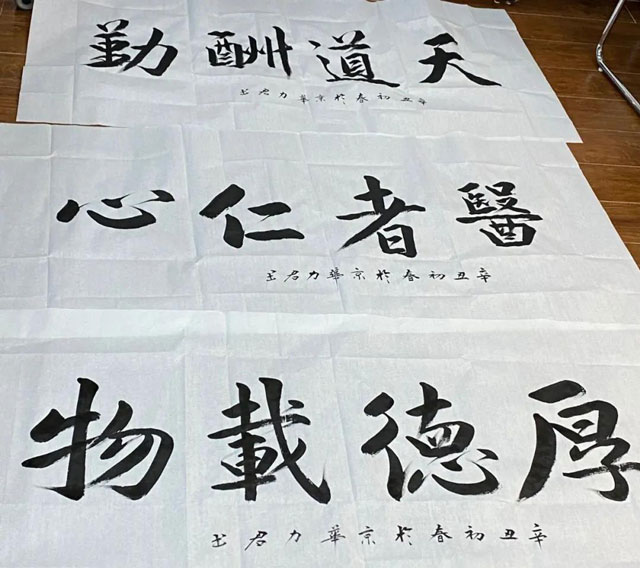 天道酬勤
辛丑初春於京華力君书
醫者仁心
辛丑初春於京華力君书
厚德載物
辛丑初春於京華力君书